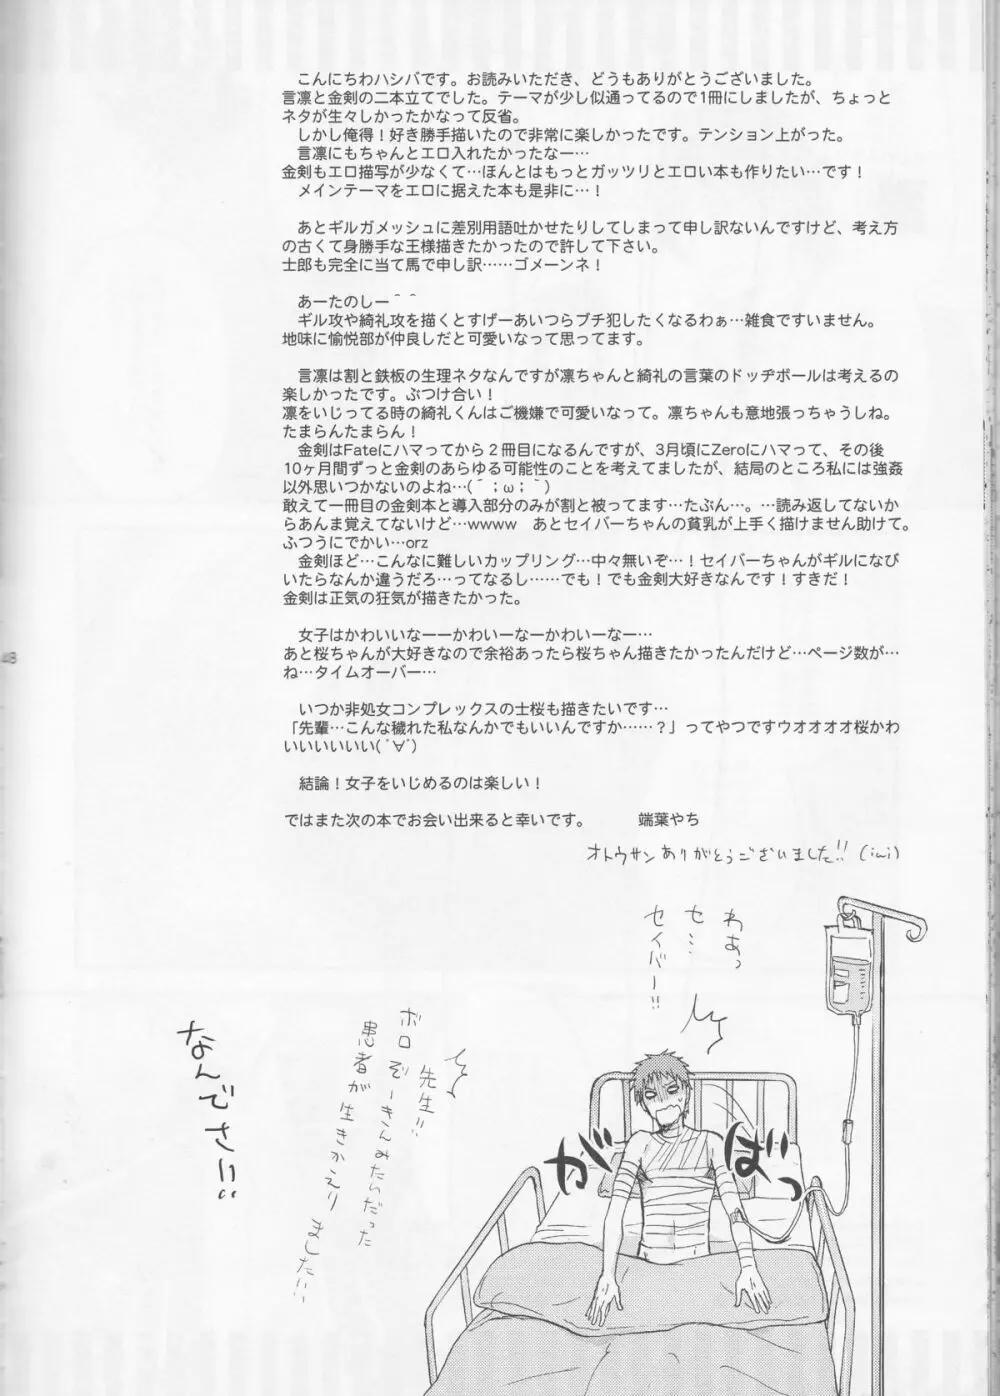 こんにちわハシバです。お読みいただき、どうもありがとうございました。
言凛と金剣の二本立てでした。テーマが少し似通ってるので1冊にしましたが、ちょっと
ネタが生々しかったかなって反省。
しかし俺得！好き勝手描いたので非常に楽しかったです。テンション上がった。
言凛にもちゃんとエロ入れたかったなー…
金剣もエロ描写が少なくて…ほんとはもっとガッツリとエロい本も作りたい…です！
メインテーマをエロに据えた本も是非に…！
あとギルガメッシュに差別用語吐かせたりしてしまって申し訳ないんですけど、考え方
の古くて身勝手な王様描きたかったので許して下さい。
士郎も完全に当て馬で申し訳……ゴメーンネ！
あーたのしー＾＾
ギル攻や綺礼攻を描くとすげーあいつらブチ犯したくなるわぁ…雑食ですいません。
地味に愉悦部が仲良しだと可愛いなって思ってます。
言凛は割と鉄板の生理ネタなんですが凛ちゃんと綺礼の言葉のドッヂボールは考えるの
楽しかったです。ぶつけ合い！
凛をいじってる時の綺礼くんはご機嫌で可愛いなって。凛ちゃんも意地張っちゃうしね。
たまらんたまらん！
金剣はFateにハマってから２冊目になるんですが、3月頃にZeroにハマって、その後
10ヶ月間ずっと金剣のあらゆる可能性のことを考えてましたが、結局のところ私には強姦
以外思いつかないのよね…(´；ω；`)
敢えて一冊目の金剣本と導入部分のみが割と被ってます…たぶん…。…読み返してないか
らあんま覚えてないけど…wwww　あとセイバーちゃんの貧乳が上手く描けません助けて。
ふつうにでかい…orz
金剣ほど…こんなに難しいカップリング…中々無いぞ…！セイバーちゃんがギルになび
いたらなんか違うだろ…ってなるし……でも！でも金剣大好きなんです！すきだ！
金剣は正気の狂気が描きたかった。
女子はかわいいなーーかわいーなーかわいーなー…
あと桜ちゃんが大好きなので余裕あったら桜ちゃん描きたかったんだけど…ページ数が…
ね…タイムオーバー…
いつか非処女コンプレックスの士桜も描きたいです…
「先輩…こんな穢れた私なんかでもいいんですか……？」ってやつですウオオオオ桜かわ
いいいいいい(ﾟ∀ﾟ)
結論！女子をいじめるのは楽しい！
ではまた次の本でお会い出来ると幸いです。　端葉やち
オトウサンありがとうございました!! (iωi)
わあっ
セ…
セイバー!!
がばっ
先生!!
ボロぞーきんみたいだった
患者が生きかえりました!!
なんでさ!!